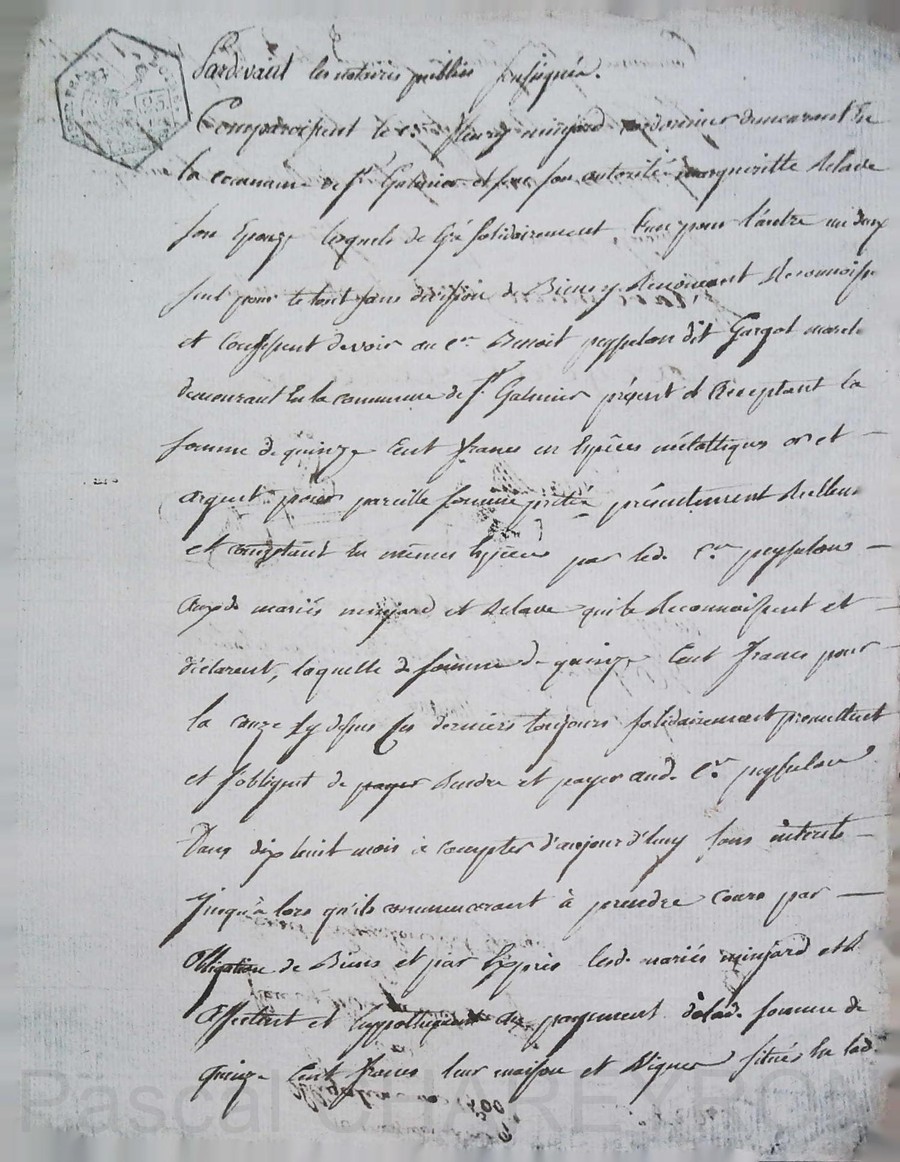 Pardevant les notaires publics soussignés.
Comparoissent le cen fleury minjard cordonnier demeurant En
la commune de St Galmier et sous son autorité margueritte Delave
son Epouze lesquels de Gré solidairement, l'un pour l'autre un deux
seul pour le tout sans division de Biens y Renoncent Reconnoisse
et Confessent devoir au cen Benoit peysselon dit Gargot march
demeurant En la commune de St Galmier présent et acceptant la
somme de quinze Cent francs en Espèces métalliques or et
argent pour pareille somme prêtée présentement Réelleme
et comptant En mêmes Espèces par led. Cen peysselon
auxds mariés minjard et Delave qui le Reconnoissent et
déclarent, laquelle de somme de quinze Cent francs pour
la cauze Cy dessus Ces derniers toujours solidairement promettent
et s'obligent de payer Rendre et payer aud. Cen peysselon
Dans dix huit mois à compter d'aujourd'huy sans intérêts
jusqu'a lors qu'ils commenceront à prendre cours par
Obligation de Biens et par Exprès lesd. mariés minjard et D
affectent et hypothequent au payement de lad. somme de
quinze Cent francs leur maison et Vignes situés En lad.
Pascal CHAREYRON